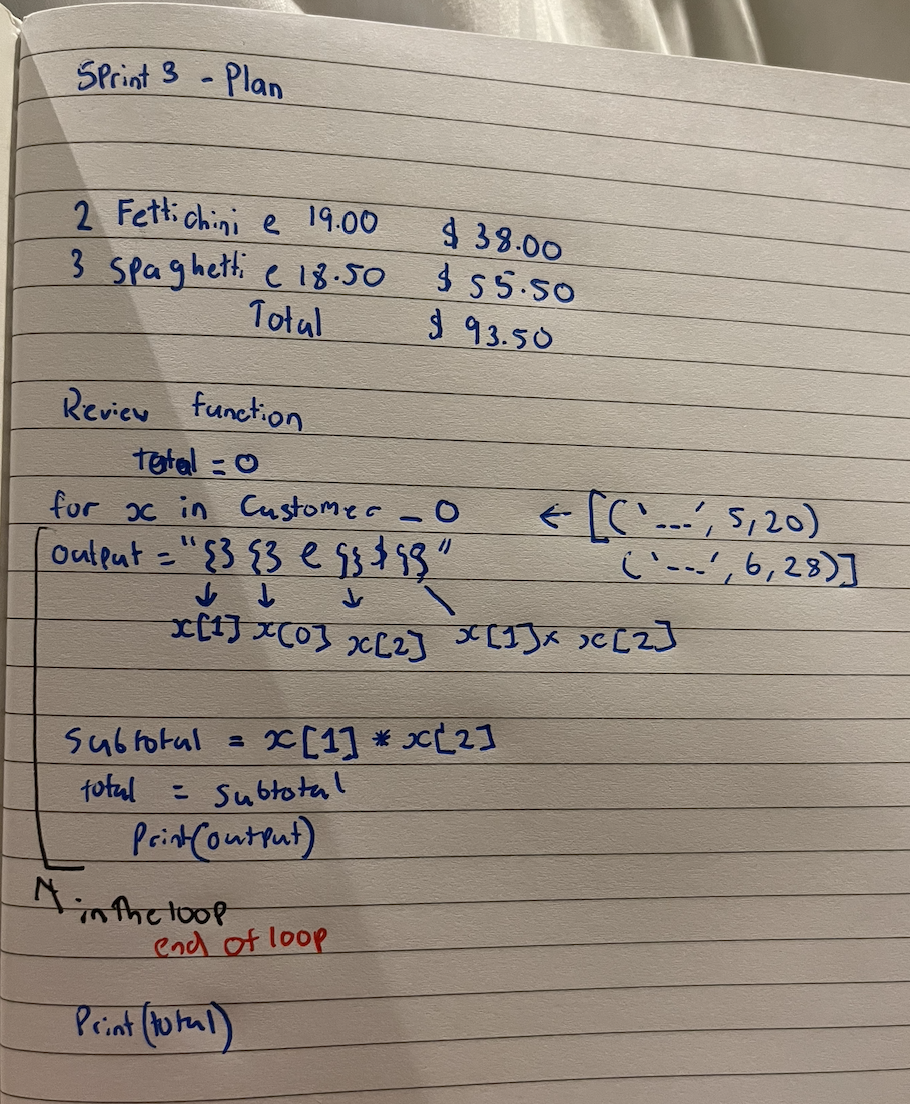 Sprint 3 - Plan
2 Fettichini @ 19.00 $ 38.00
3 spaghetti @ 18.50 $ 55.50
Total $ 93.50
Review function
total = 0
for x in Customer _ O ← [('---', 5, 20)
output = "{} {} @ {} $ {}" ('---', 6, 28)]
x[1] x[0] x[2] x[1] x x[2]
Subtotal = x[1] * x[2]
total = subtotal
Print(output)
in the loop
end of loop
Print(total)